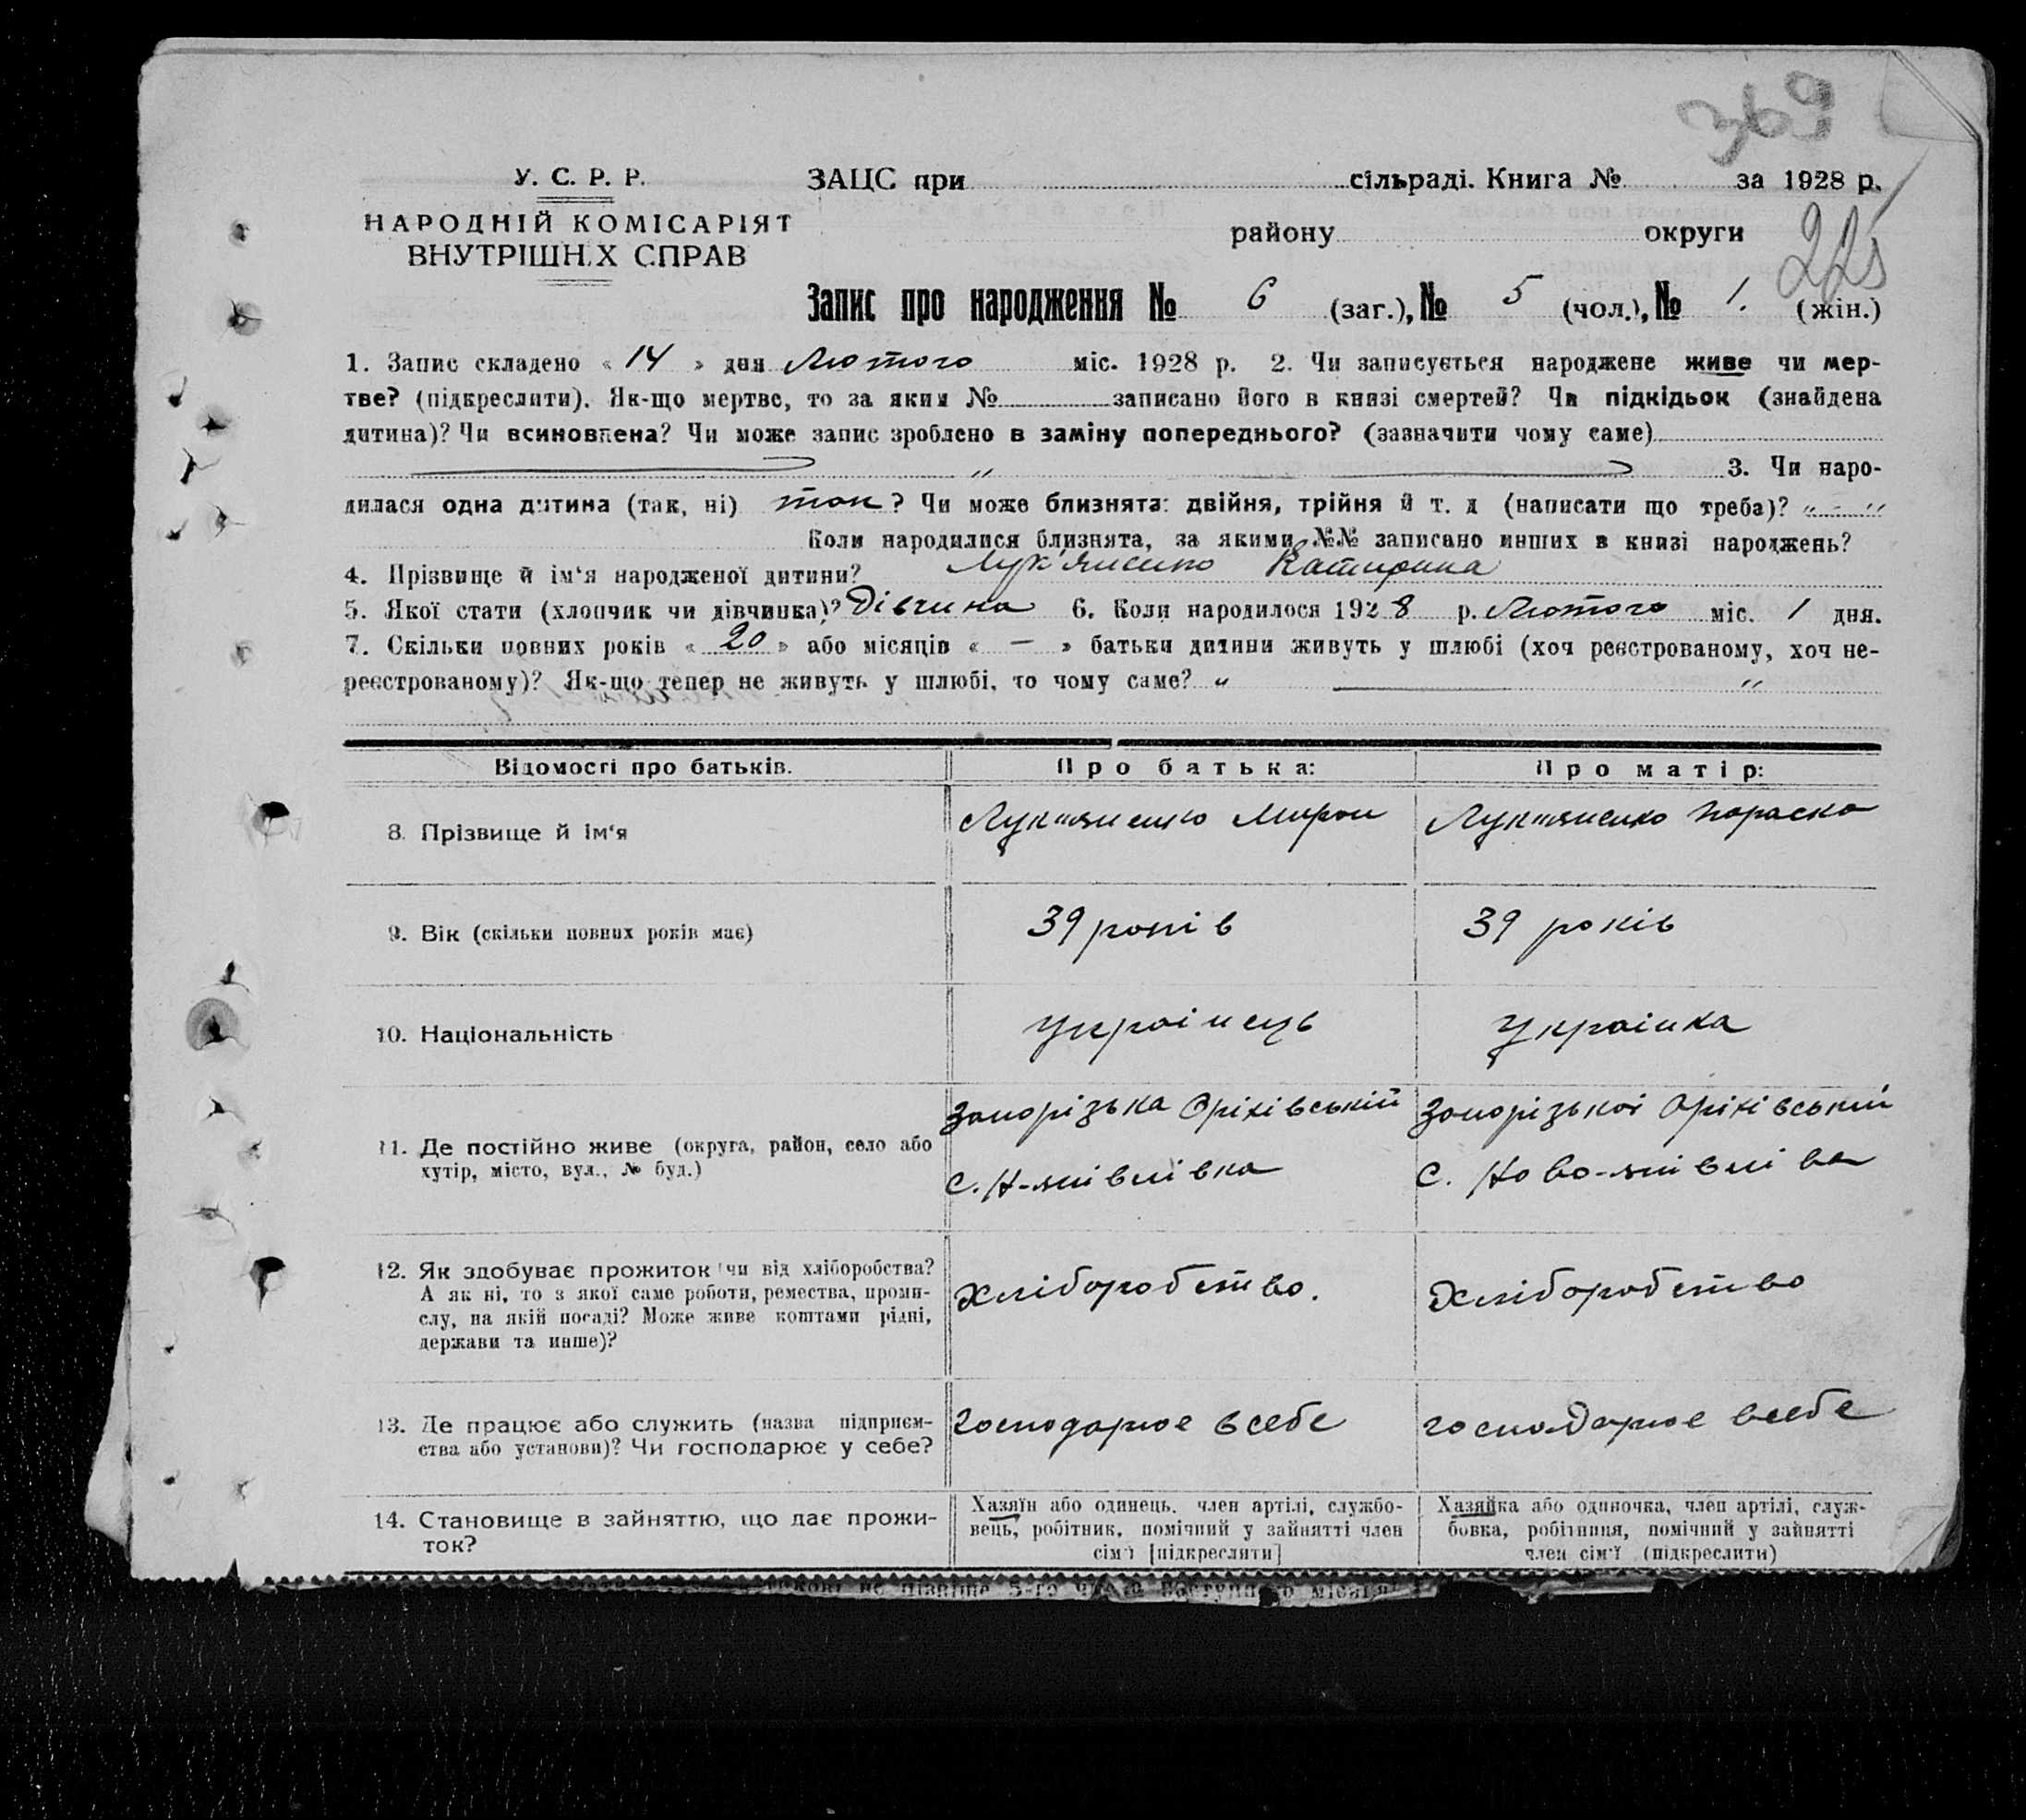 369
У. С. Р. Р.
НАРОДНІЙ КОМІСАРІЯТ
ВНУТРІШН.Х СПРАВ
ЗАЦС при сільраді. Книга № за 1928 р.
району округи
225
Запис про народження № 6 (заг.), № 5 (чол.), № 1. (жін.)
1. Запис складено « 14 » дня Лютого міс. 1928 р. 2. Чи записується народжене живе чи мер-
тве? (підкреслити). Як-що мертве, то за яким № записано його в книзі смертей? Чи підкідьок (знайдена
дитина)? Чи всиновлена? Чи може запис зроблено в заміну попереднього? (зазначити чому саме)
" 3. Чи наро-
дилася одна дитина (так, ні) так? Чи може близнята: двійня, трійня й т. д (написати що треба)? " - "
Коли народилися близнята, за якими №№ записано инших в книзі народжень?
4. Прізвище й ім'я народженої дитини? Лук'яненко Катирина
5. Якої стати (хлопчик чи дівчинка)? Дівчина 6. Коли народилося 1928 р. Лютого міс. 1 дня.
7. Скільки повних років « 20 » або місяців « — » батьки дитини живуть у шлюбі (хоч реєстрованому, хоч не-
реєстрованому)? Як-що тепер не живуть у шлюбі, то чому саме? " "
Відомості про батьків. Про батька: Про матір:
8. Прізвище й ім'я Лукяненко Мирон Лукяненко Параска
9. Вік (скільки повних років має) 39 років 39 років
10. Національність Українець Українка
11. Де постійно живе (округа, район, село або
хутір, місто, вул., № буд.)
Запорізька Оріхівський
с. Н-
Запорізької Оріхівський
С. Ново-
12. Як здобуває прожиток чи від хліборобства?
А як ні, то з якої саме роботи, ремества, проми-
слу, на якій посаді? Може живе коштами рідні,
держави та инше)?
Хліборобство. Хліборобство
13. Де працює або служить (назва підприєм-
ства або установи)? Чи господарює у себе?
Господарює всебе господарює всебе
14. Становище в зайняттю, що дає прожи-
ток?
Хазяїн або одинець. член артілі, службо-
вець, робітник, помічний у зайнятті член
сім'ї [підкресляти]
Хазяйка або одиночка, член артілі, служ-
бовка, робітниця, помічний у зайнятті
член сім'ї (підкреслити)
не пізніше 5-го